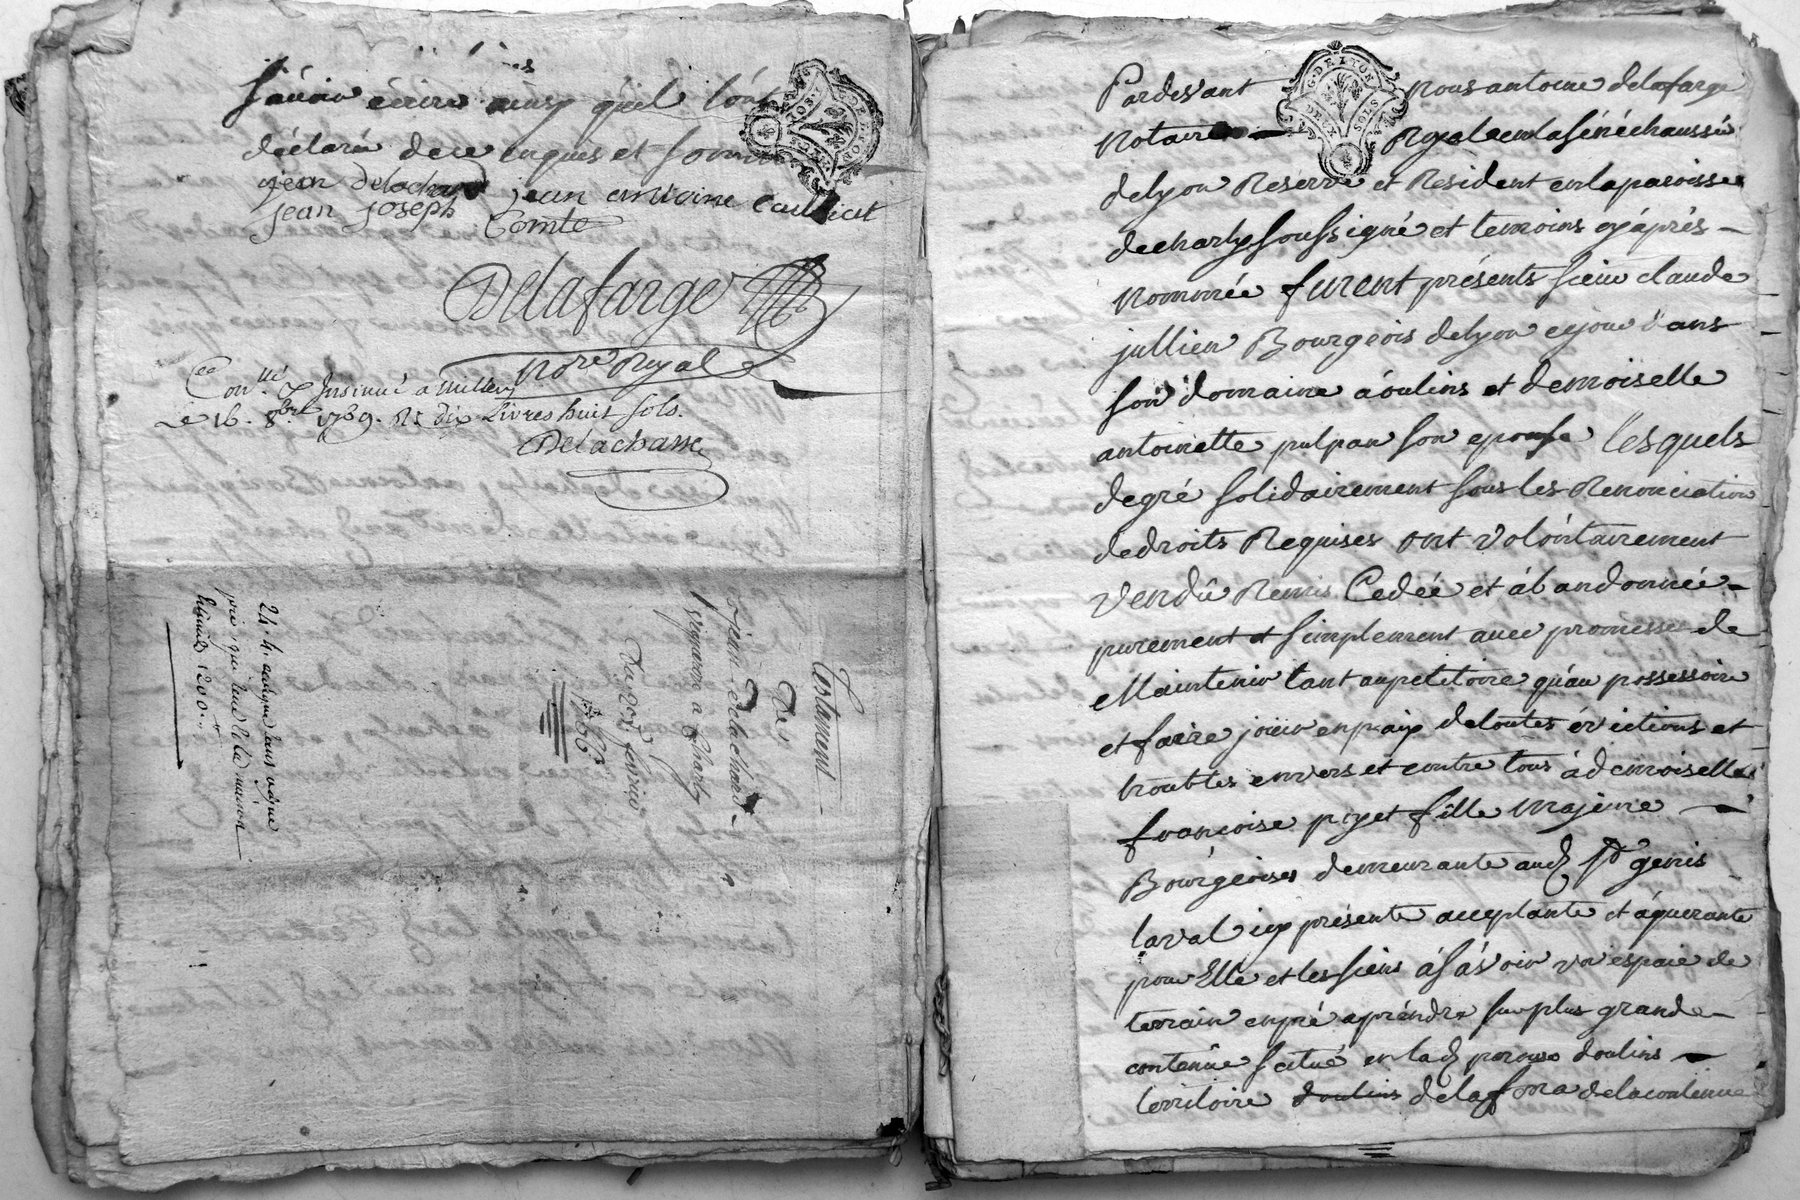 sávoir écrire ainsy qu'il l'ont
déclaré de ce enquis et sommé
jean Delachard jean antoine
jean joseph Comte
Delafarge
No.re Royal
Con.llé & Insinué a Millery
le 16. 8.bre 1769. Rs dix Livres huit sols.
Delachasse
Testament
De
jean Delachard
vigneron a Charly
Du 20e fevrier
1766
G. DE LYON
DEUX SOLS
Pardevant nous antoine delafarge
Notaire Royal en la sénéchaussée
de lyon Reservé et Resident en la paroisse
de charly soussigné et temoins cy áprés
nommée furent présents sieur claude
jullien Bourgeois de lyon
son domaine á oulins et demoiselle
antoinette pulpan son epouse lesquels
de gré solidairement sous les Renonciation
de droits Requises ont volóntairement
vendû Remis Cedée et ábandonnée
purement et simplement avec promesse de
Maintenir tant au petitoire qu'au possessoire
et faire joüir en paix de toutes évictions et
troubles envers et contre tous á demoiselle
françoise piyet fille majeure
Boúrgeoise demeurante aud. St genis
laval icy présente acceptante et áquerante
pour Elle et les siens á sávoir un espace de
terrain en pré a préndre sur plus grande
contenüe scitué en lad. paroisse doulins
territoire doulins de la fona de la contenue